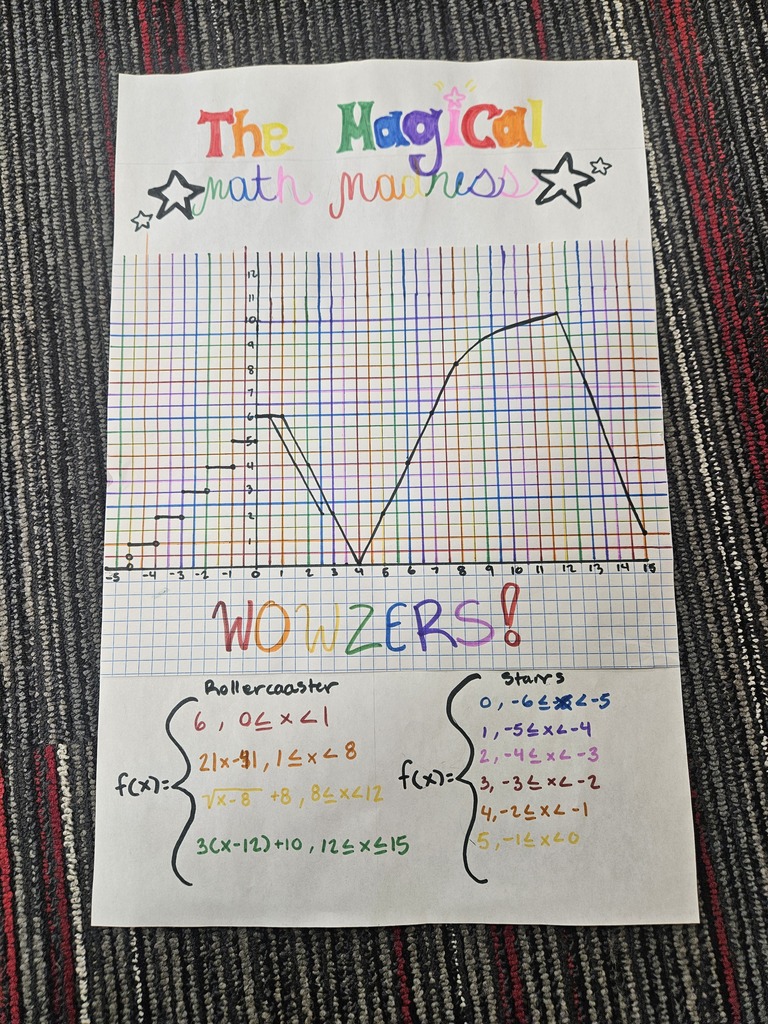 The Magical
math madness
12
11
10
9
8
7
6
5
4
3
2
1
-5 -4 -3 -2 -1 0 1 2 3 4 5 6 7 8 9 10 11 12 13 14 15
WOWZERS!
Rollercoaster
f(x)=
6, 0≤ x <1
2|x-4|, 1≤ x < 8
√x-8 +8, 8≤x<12
3(x-12)+10, 12≤ x ≤15
Stairs
f(x)=
0, -6≤x<-5
1, -5≤x<-4
2, -4≤ x< -3
3, -3≤x<-2
4, -2≤x< -1
5, -1≤x<0